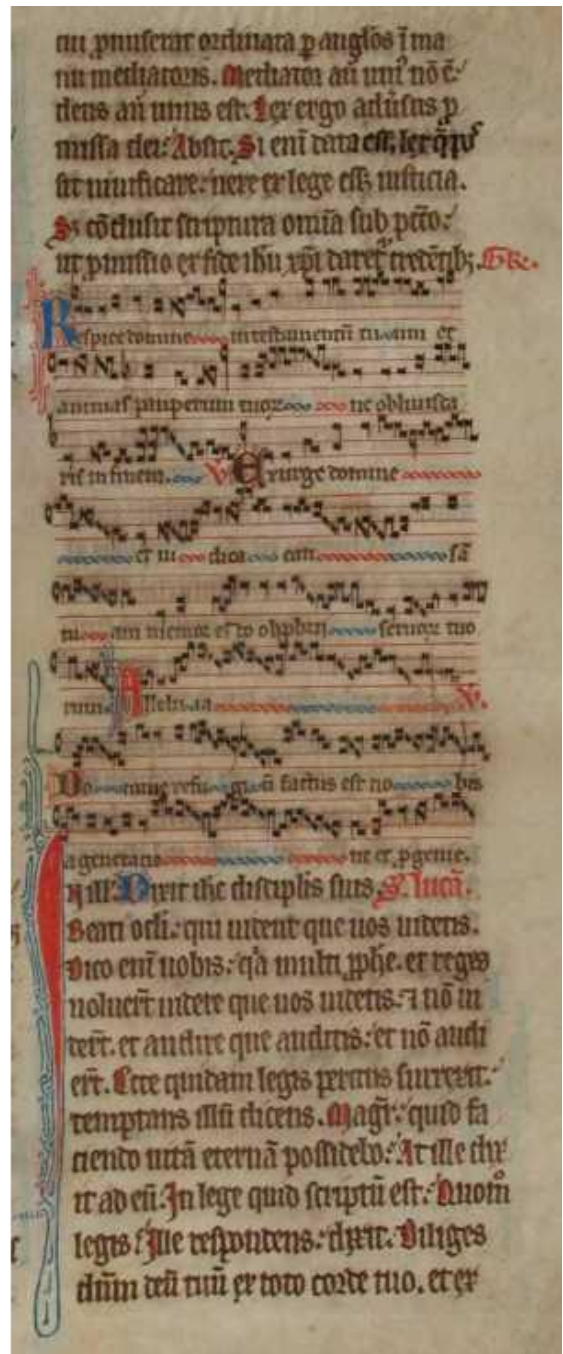 cui p̱miserat ordinata ꝑ anglos ī ma
nu mediatoris. Mediator aū uniꝰ nō ē.
deus aū unus est. Lex ergo aduſus ꝓ
missa dei. Absit. Si eni data est lex q̄ poſ
sit uiuificare. uere ex lege eēt iusticia.
Sꝫ cōclusit scriptura omīa sub pctō.
ut ꝓmissio ex fide ihu xpi daret᷑ credētibꝫ. Gr̄.
Respice domine in testamentū tuum et
animas pauperum tuoꝝ ne obliuisca
ris in finem. V. Exurge domine
et iudica cau sā
tu am memor es to obpbrii seruoꝝ tuo
rum Alleluia V.
Domine refugiū factus es no bis
a generatione et ꝓgenie.
In ill. Dixit ihc discipulis suis. S. lucā.
Beati ocli. qui uident que uos uidetis.
Dico eni uobis. qa multi ꝓphe. et reges
uoluert uidere que uos uidetis. ⁊ nō ui
dert. et audire que auditis. et nō audi
ert. Ecce quidam legis peritus surrexit.
temptans illū dicens. Magr. quid fa
ciendo uitā eternā possidebo. At ille dix
it ad eū. In lege quid scriptū est. Quom̊
legis. Ille respondens. dixit. Diliges
dn̄m deū tuū ex toto corde tuo. et ex